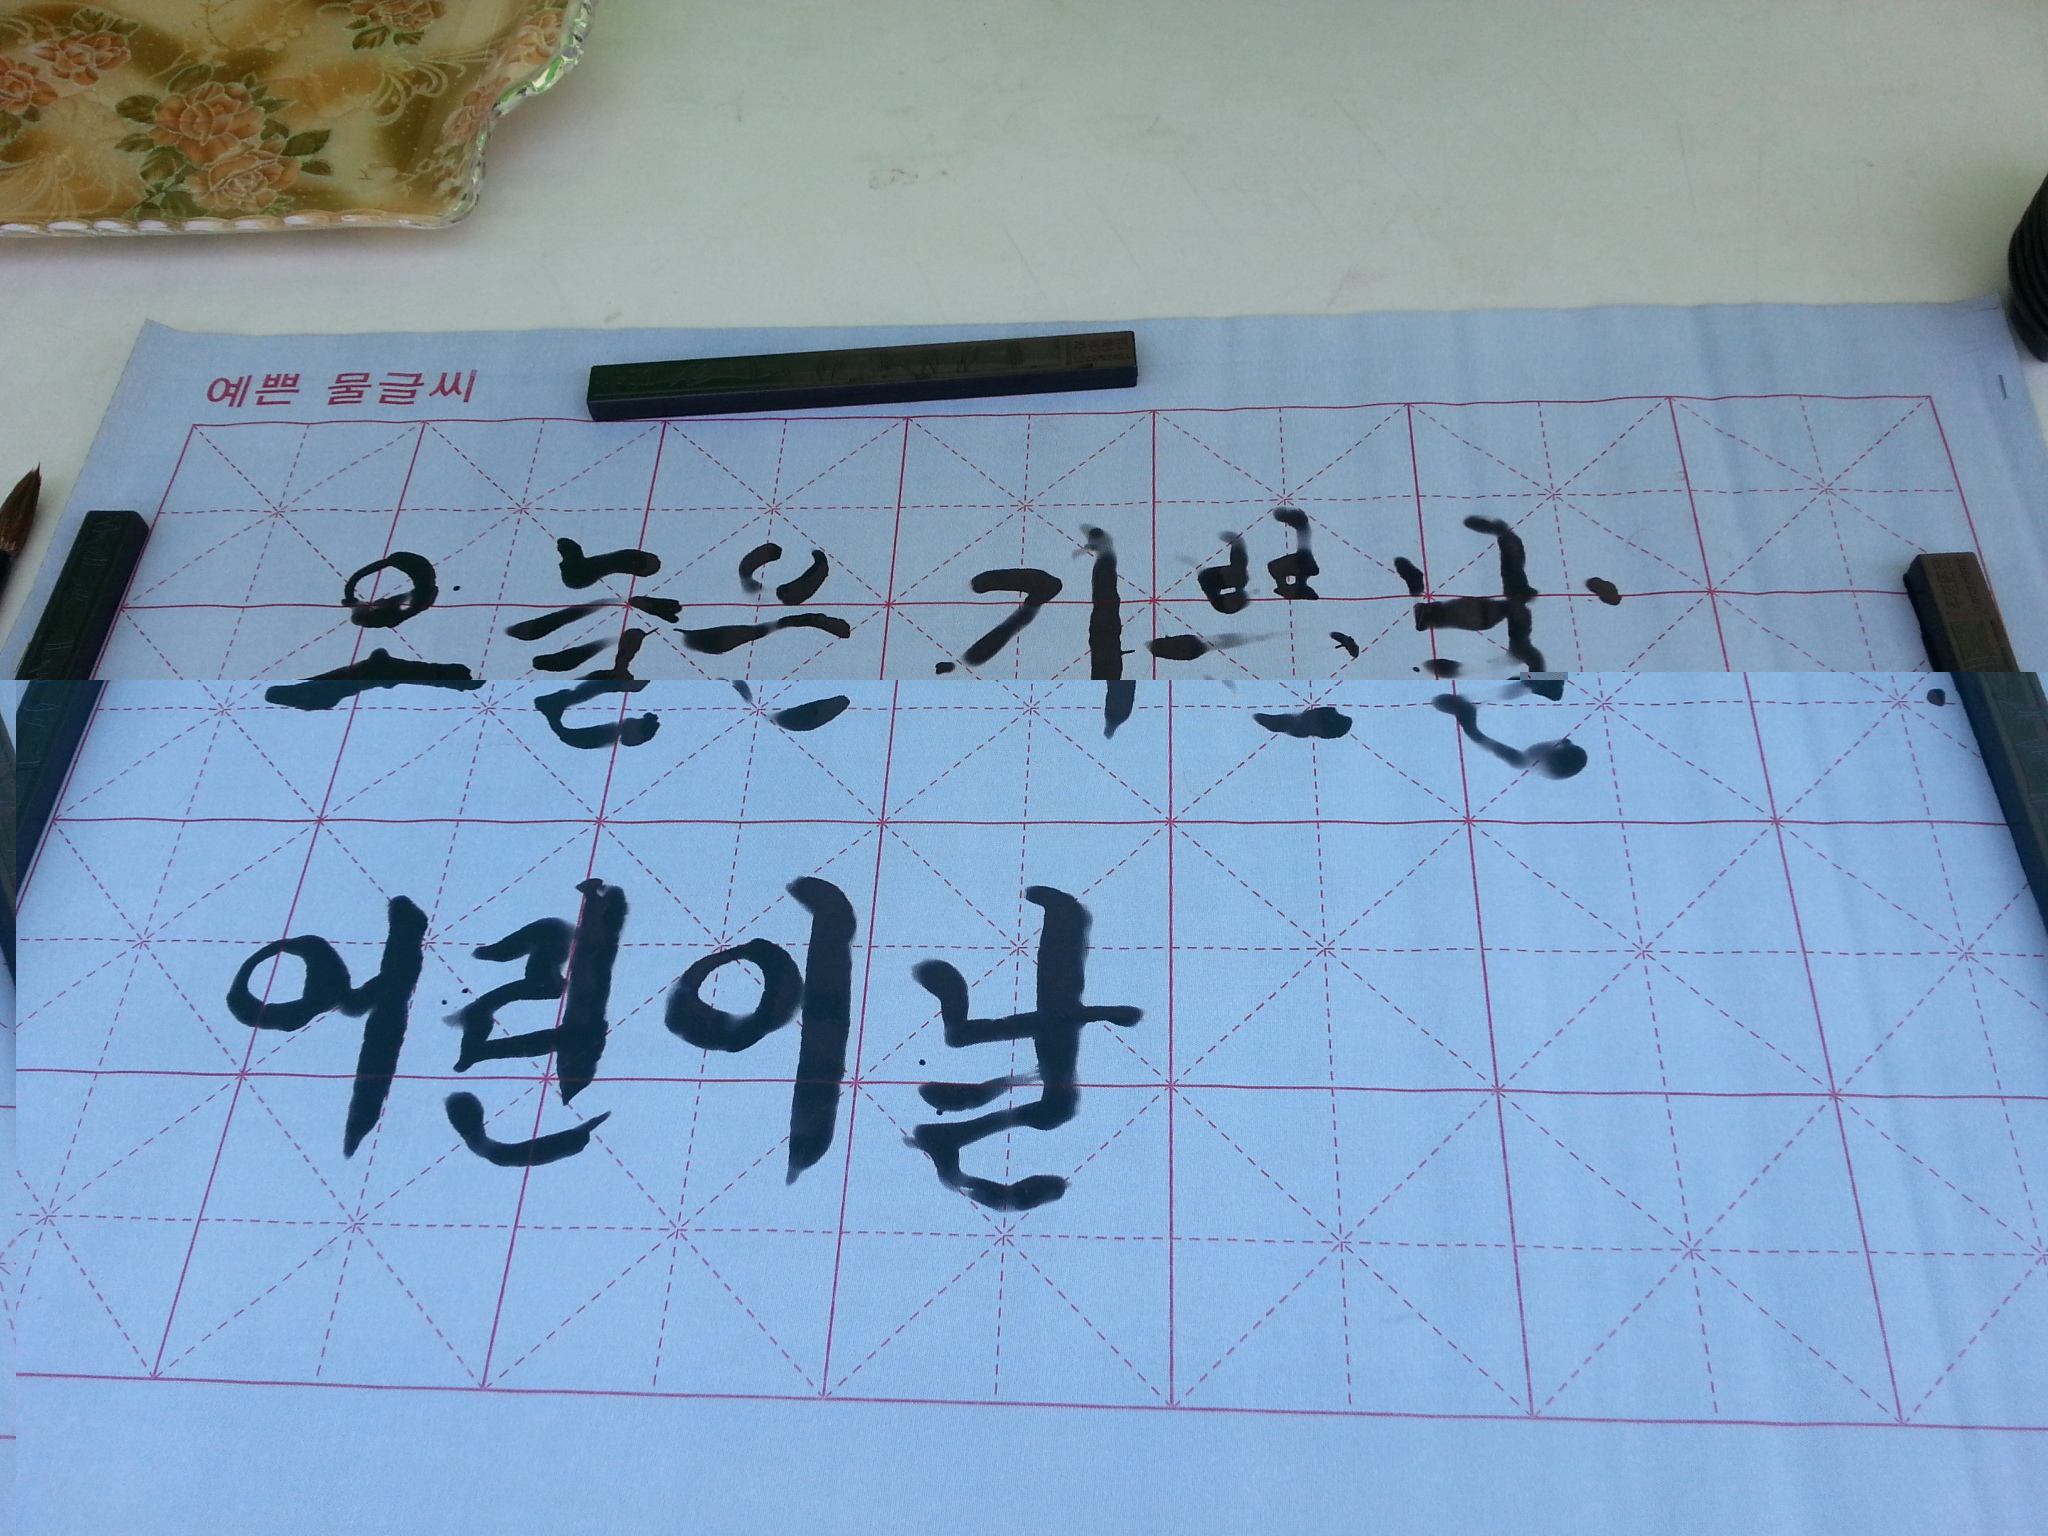 예쁜 물글씨
오늘은 기쁜날
어린이날